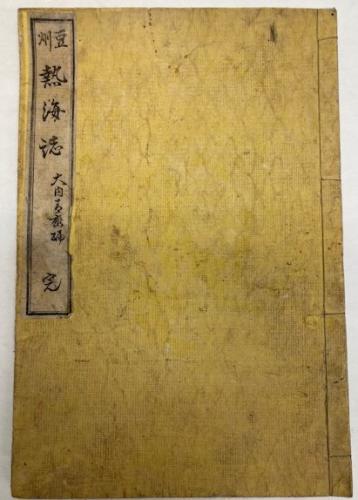 豆州熱海誌
大内青巒編
完